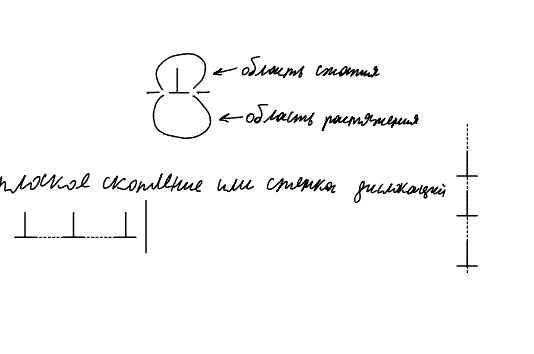 область сжатия
область растяжения
плоское скопление или стенка дислокаций